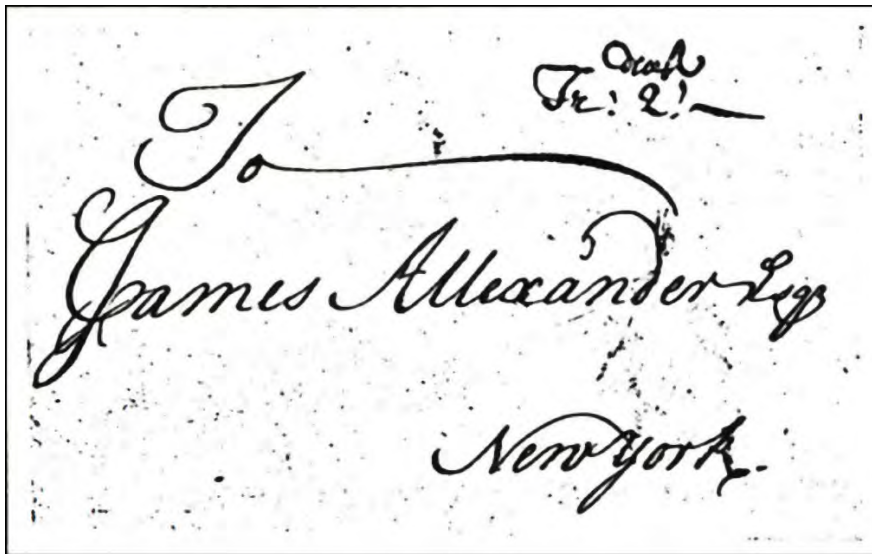 To
James Allexander Esqr
New York.